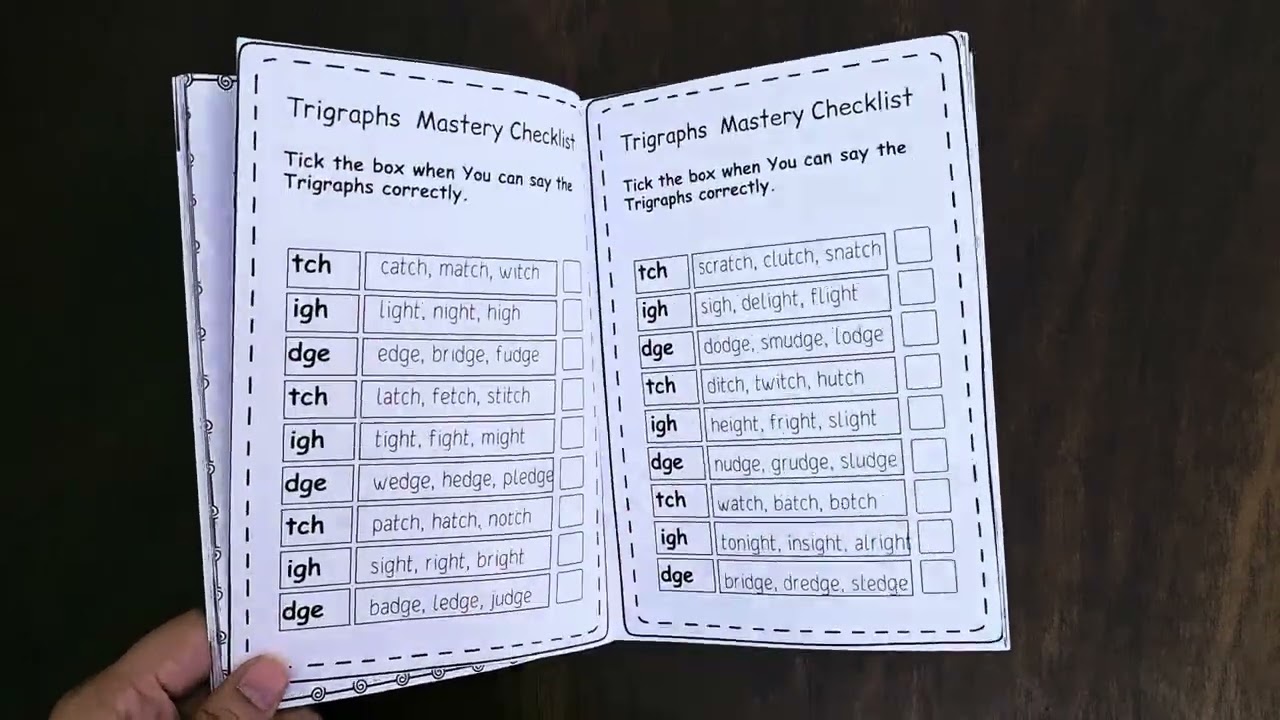 Trigraphs Mastery Checklist
Tick the box when You can say the
Trigraphs correctly.
tch catch, match, witch
igh light, night, high
dge edge, bridge, fudge
tch latch, fetch, stitch
igh tight, fight, might
dge wedge, hedge, pledge
tch patch, hatch, notch
igh sight, right, bright
dge badge, ledge, judge
Trigraphs Mastery Checklist
Tick the box when You can say the
Trigraphs correctly.
tch scratch, clutch, snatch
igh sigh, delight, flight
dge dodge, smudge, lodge
tch ditch, twitch, hutch
igh height, fright, slight
dge nudge, grudge, sludge
tch watch, batch, botch
igh tonight, insight, alright
dge bridge, dredge, sledge